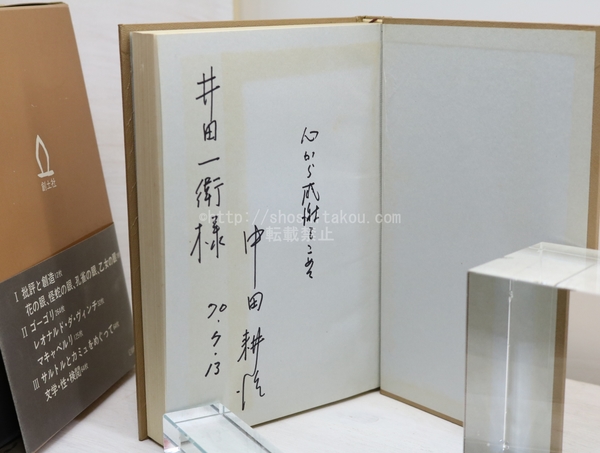 井田一衛様
心から感謝をこめて
中田耕治
70.5.13
©http://shoshitakou.com
転載禁止
創土社
I 批評と創造
花の眼、怪蛇の眼、孔雀の眼、乙女の眼
II ゴーゴリ
レオナルド・ダ・ヴィンチ
マキャベルリ
III サルトルとカミュをめぐって
文学・性・検閲